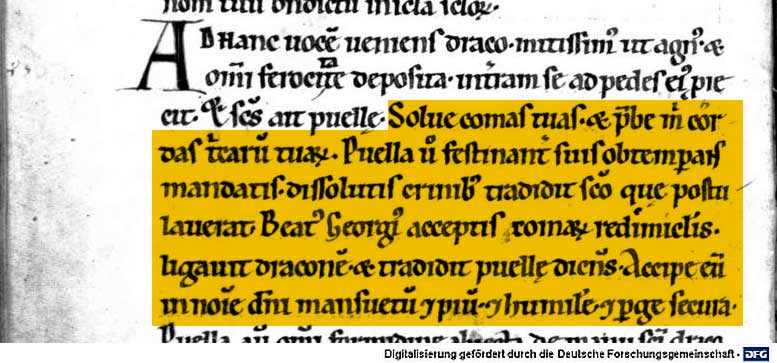 nom tuū bn̄dictū in sc̄la sc̄loꝝ.
AD HANC uocē ueniens draco. mitissimꝰ ut agnꝰ &
om̄i ferocitate deposita. int̄ram se ad pedes eiꝰ pie
cit. Et sc̄s ait puellę. Solue comas tuas. & p̄be m̄ cor
das t̄carū tuaꝝ. Puella ū festinant̄ suis obtemꝑans
mandatis. dissolutis crinibꝰ tradidit sc̄o que postu
lauerat. Beatꝰ Georgiꝰ acceptis comaꝝ redimiclis.
ligauit draconē. & tradidit puellę dicens. Accipe eū
in noīe dn̄i mansuetū ⁊ piū. ⁊ humilē. ⁊ ꝑge secura.
Puella aū om̄i formidine abiecta de manu sc̄i draco
Digitalisierung gefördert durch die Deutsche Forschungsgemeinschaft - DFG